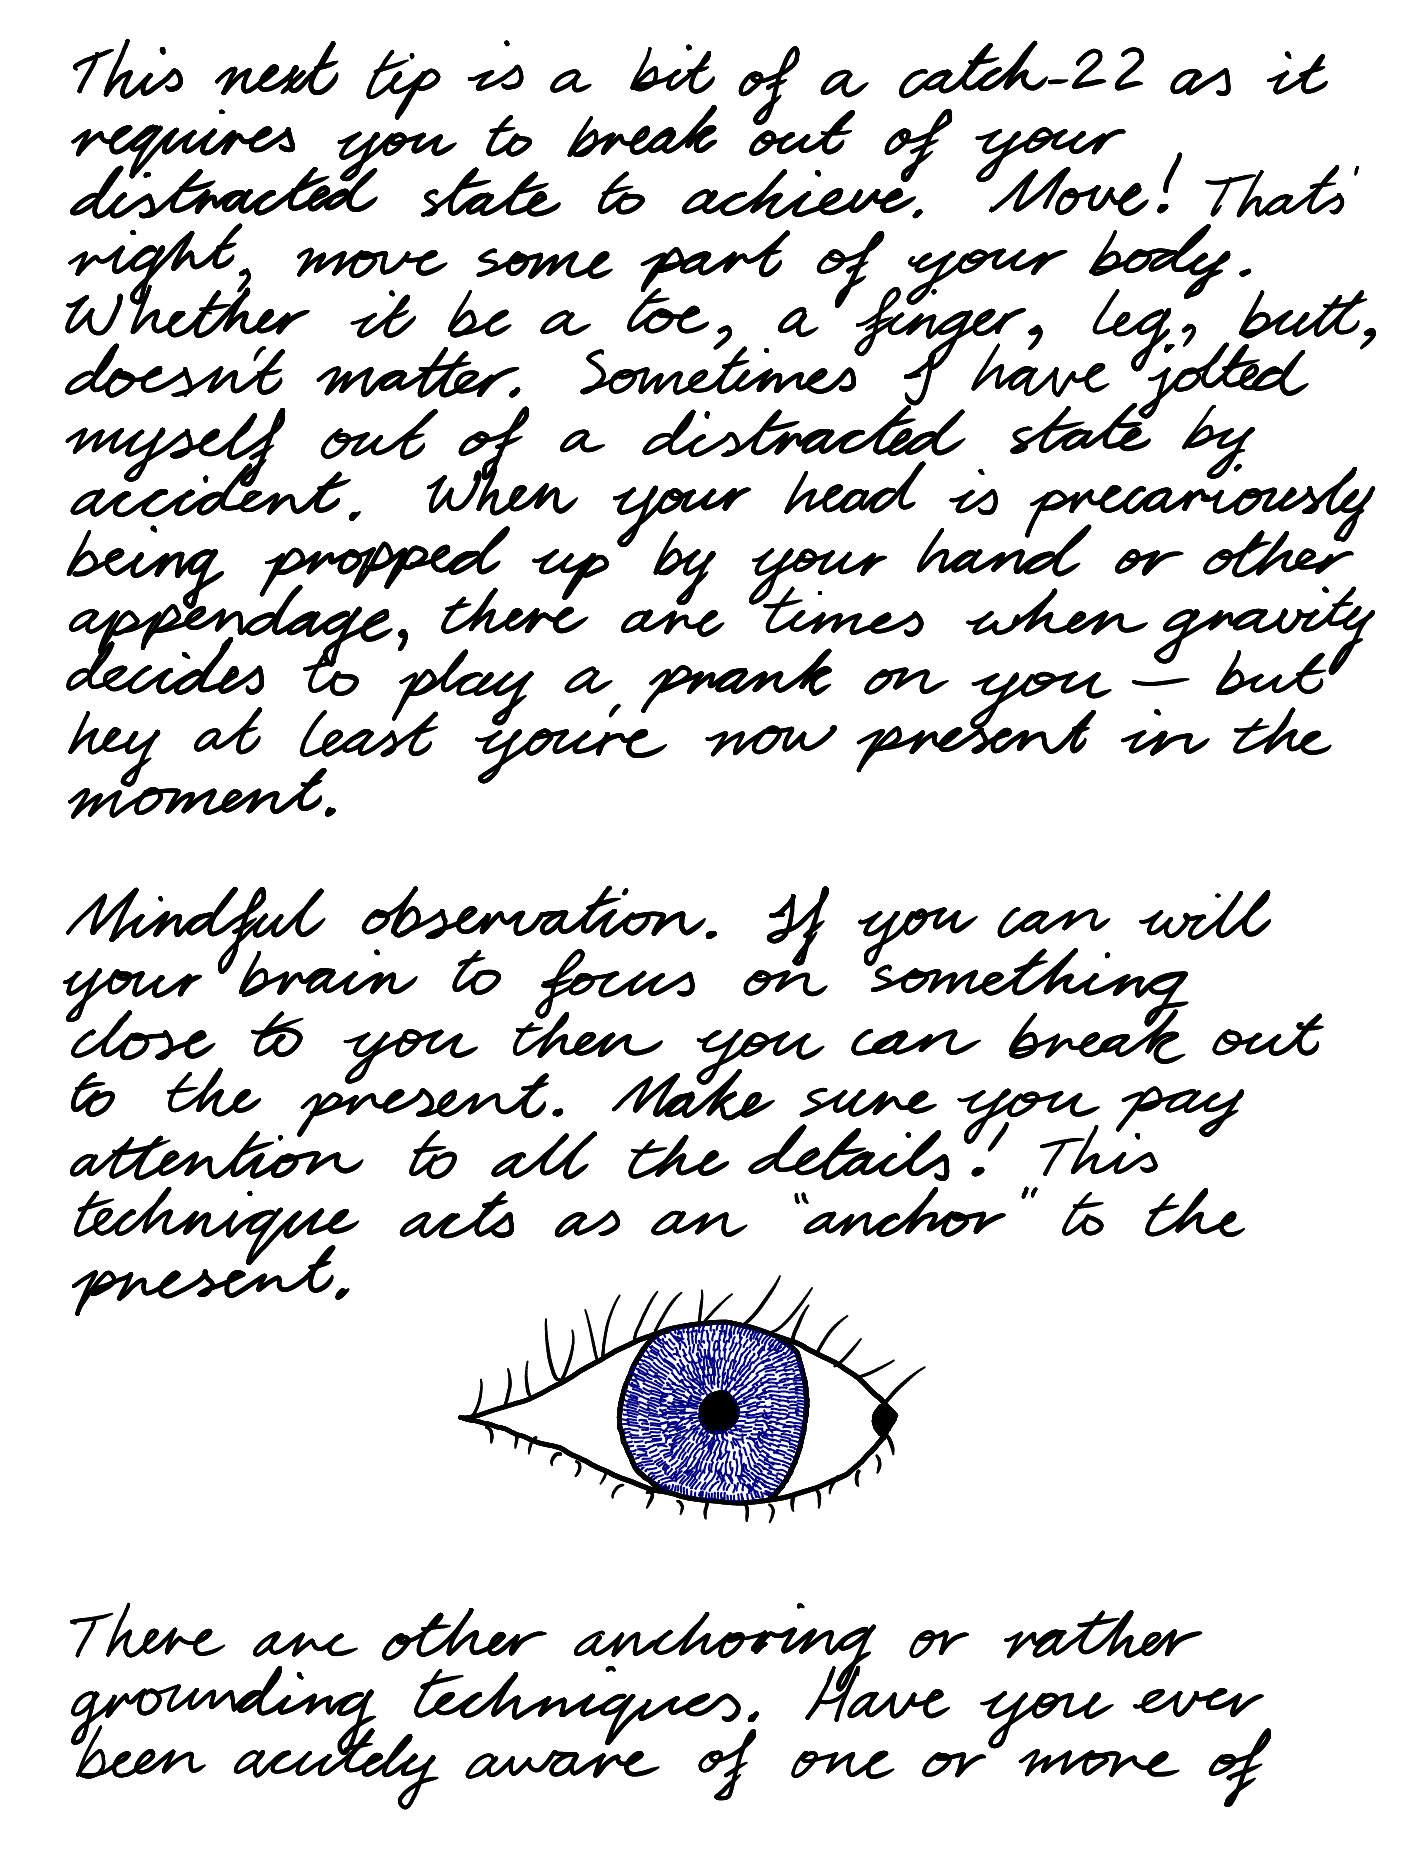 This next tip is a bit of a catch-22 as it
requires you to break out of your
distracted state to achieve. Move! Thats'
right, move some part of your body.
Whether it be a toe, a finger, leg, butt,
doesn't matter. Sometimes I have jolted
myself out of a distracted state by
accident. When your head is precariously
being propped up by your hand or other
appendage, there are times when gravity
decides to play a prank on you — but
hey at least you're now present in the
moment.
Mindful observation. If you can will
your brain to focus on something
close to you then you can break out
to the present. Make sure you pay
attention to all the details! This
technique acts as an "anchor" to the
present.
There are other anchoring or rather
grounding techniques. Have you ever
been acutely aware of one or more of